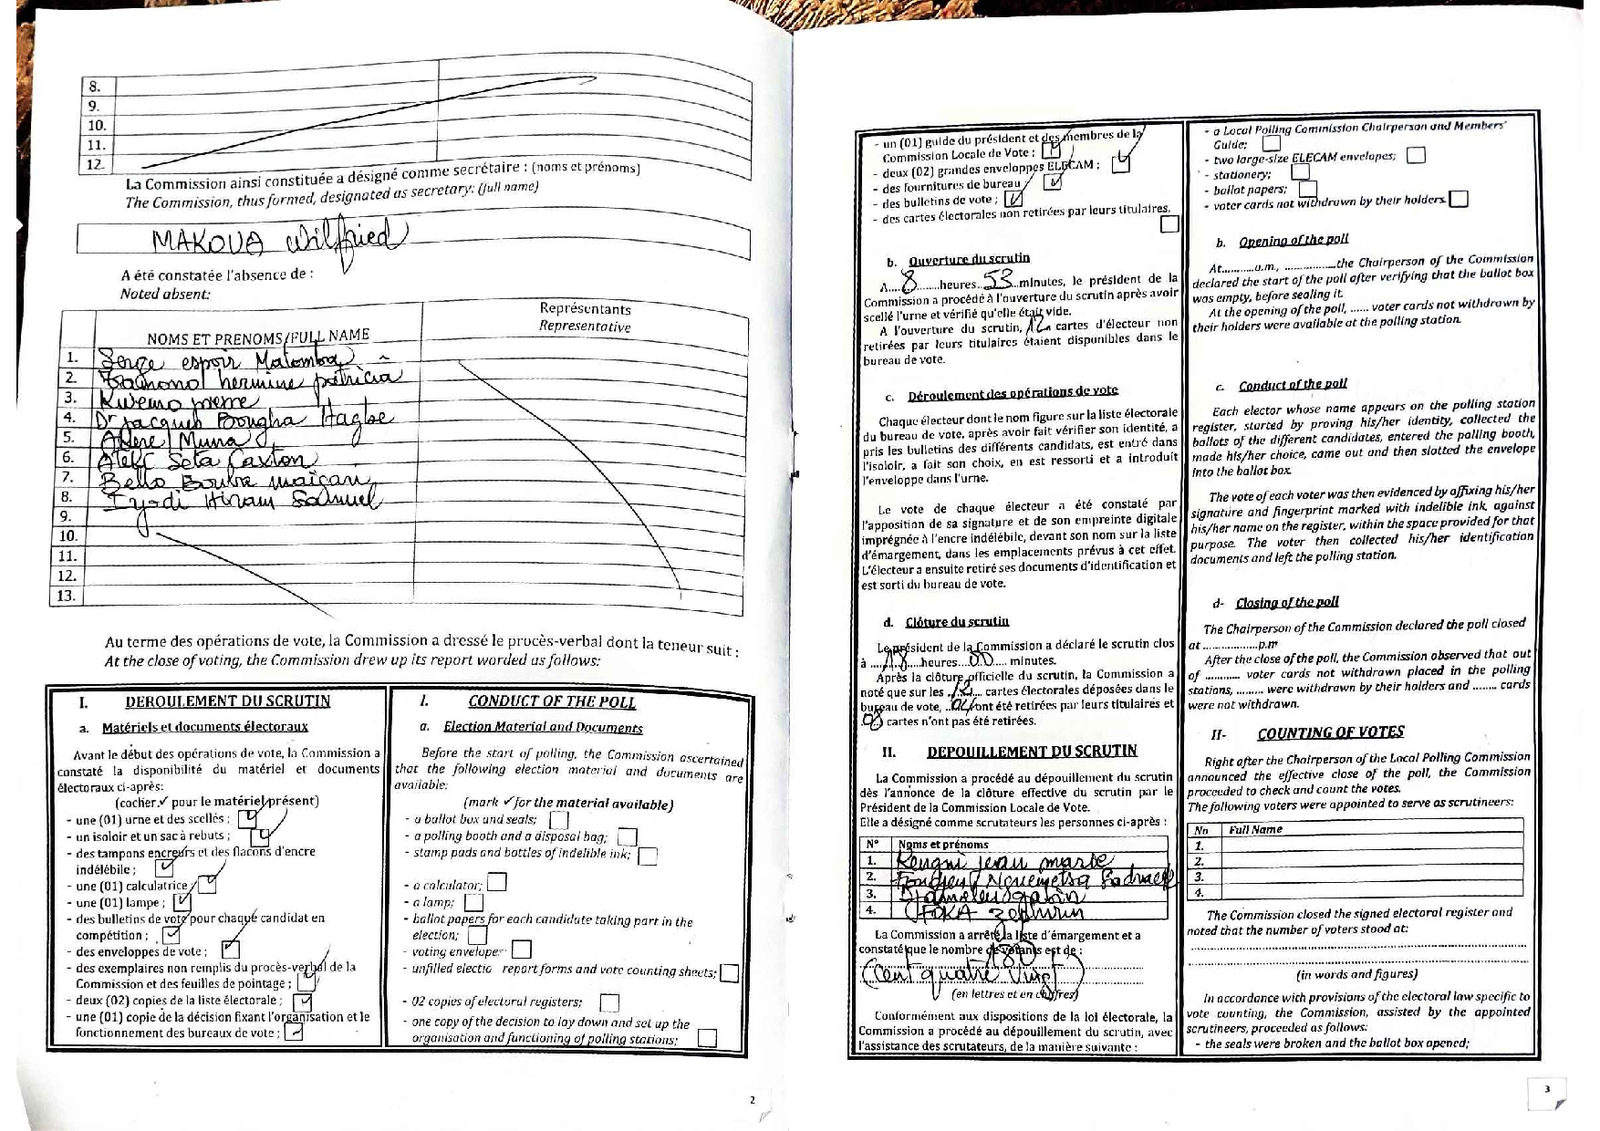 8.
9.
10.
11.
12.
La Commission ainsi constituée a désigné comme secrétaire : (noms et prénoms)
The Commission, thus formed, designated as secretary: (full name)
MAKOUA Wilfried
A été constatée l'absence de :
Noted absent:
NOMS ET PRENOMS/FULL NAME
Représentants
Representative
1. Serge espoir Matomba
2. hermine patricia
3. Kwemo pierre
4. Dr Jacques Bougha Hagbe
5. Akere Muna
6. Ateki Seta Caxton
7. Bello Bouba maigari
8. Iyodi Hiram Samuel
9.
10.
11.
12.
13.
Au terme des opérations de vote, la Commission a dressé le procès-verbal dont la teneur suit :
At the close of voting, the Commission drew up its report worded as follows:
I. DEROULEMENT DU SCRUTIN
a. Matériels et documents électoraux
Avant le début des opérations de vote, la Commission a
constaté la disponibilité du matériel et documents
électoraux ci-après:
(cocher ✓ pour le matériel présent)
- une (01) urne et des scellés ;
- un isoloir et un sac à rebuts ;
- des tampons encreurs et des flacons d'encre
indélébile ;
- une (01) calculatrice
- une (01) lampe ;
- des bulletins de vote pour chaque candidat en
compétition ;
- des enveloppes de vote ;
- des exemplaires non remplis du procès-verbal de la
Commission et des feuilles de pointage ;
- deux (02) copies de la liste électorale ;
- une (01) copie de la décision fixant l'organisation et le
fonctionnement des bureaux de vote ;
I. CONDUCT OF THE POLL
a. Election Material and Documents
Before the start of polling, the Commission ascertained
that the following election material and documents are
available:
(mark ✓ for the material available)
- a ballot box and seals;
- a polling booth and a disposal bag;
- stamp pads and bottles of indelible ink;
- a calculator;
- a lamp;
- ballot papers for each candidate taking part in the
election;
- voting envelope:
- unfilled electio report forms and vote counting sheets;
- 02 copies of electoral registers;
- one copy of the decision to lay down and set up the
organisation and functioning of polling stations;
2
- un (01) guide du président et des membres de la
Commission Locale de Vote ;
- deux (02) grandes enveloppes ELECAM ;
- des fournitures de bureau
- des bulletins de vote ;
- des cartes électorales non retirées par leurs titulaires.
b. Ouverture du scrutin
A....8........heures...53...minutes, le président de la
Commission a procédé à l'ouverture du scrutin après avoir
scellé l'urne et vérifié qu'elle était vide.
A l'ouverture du scrutin, 12 cartes d'électeur non
retirées par leurs titulaires étaient disponibles dans le
bureau de vote.
c. Déroulement des opérations de vote
Chaque électeur dont le nom figure sur la liste électorale
du bureau de vote, après avoir fait vérifier son identité, a
pris les bulletins des différents candidats, est entré dans
l'isoloir, a fait son choix, en est ressorti et a introduit
l'enveloppe dans l'urne.
Le vote de chaque électeur a été constaté par
l'apposition de sa signature et de son empreinte digitale
imprégnée à l'encre indélébile, devant son nom sur la liste
d'émargement, dans les emplacements prévus à cet effet.
L'électeur a ensuite retiré ses documents d'identification et
est sorti du bureau de vote.
d. Clôture du scrutin
Le président de la Commission a déclaré le scrutin clos
à ....18...heures...00.... minutes.
Après la clôture officielle du scrutin, la Commission a
noté que sur les ..12.... cartes électorales déposées dans le
bureau de vote, ..04 ont été retirées par leurs titulaires et
08 cartes n'ont pas été retirées.
II. DEPOUILLEMENT DU SCRUTIN
La Commission a procédé au dépouillement du scrutin
dès l'annonce de la clôture effective du scrutin par le
Président de la Commission Locale de Vote.
Elle a désigné comme scrutateurs les personnes ci-après :
N° Noms et prénoms
1. Kengni jean marie
2.
3.
4. FOKA Zephirin
La Commission a arrêté la liste d'émargement et a
constaté que le nombre de votants est de :
180
(Cent quatre Vingt)
(en lettres et en chiffres)
Conformément aux dispositions de la loi électorale, la
Commission a procédé au dépouillement du scrutin, avec
l'assistance des scrutateurs, de la manière suivante :
- a Local Polling Commission Chairperson and Members'
Guide;
- two large-size ELECAM envelopes;
- stationery;
- ballot papers;
- voter cards not withdrawn by their holders.
b. Opening of the poll
At...........a.m., .................the Chairperson of the Commission
declared the start of the poll after verifying that the ballot box
was empty, before sealing it.
At the opening of the poll, ...... voter cards not withdrawn by
their holders were available at the polling station.
c. Conduct of the poll
Each elector whose name appears on the polling station
register, started by proving his/her identity, collected the
ballots of the different candidates, entered the polling booth,
made his/her choice, came out and then slotted the envelope
into the ballot box.
The vote of each voter was then evidenced by affixing his/her
signature and fingerprint marked with indelible ink, against
his/her name on the register, within the space provided for that
purpose. The voter then collected his/her identification
documents and left the polling station.
d- Closing of the poll
The Chairperson of the Commission declared the poll closed
at ..................p.m
After the close of the poll, the Commission observed that out
of ........... voter cards not withdrawn placed in the polling
stations, ......... were withdrawn by their holders and ........ cards
were not withdrawn.
II- COUNTING OF VOTES
Right after the Chairperson of the Local Polling Commission
announced the effective close of the poll, the Commission
proceeded to check and count the votes.
The following voters were appointed to serve as scrutineers:
Nn Full Name
1.
2.
3.
4.
The Commission closed the signed electoral register and
noted that the number of voters stood at:
(in words and figures)
In accordance with provisions of the electoral law specific to
vote counting, the Commission, assisted by the appointed
scrutineers, proceeded as follows:
- the seals were broken and the ballot box opened;
3